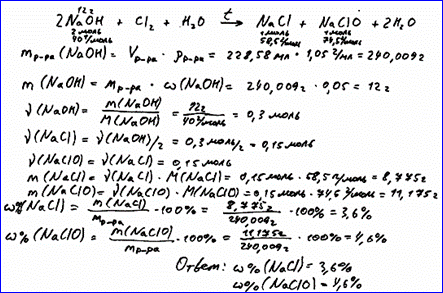 12г
2NaOH + Cl₂ + H₂O →t NaCl + NaClO + 2H₂O
2моль 1моль 1моль
40г/моль 58,5г/моль 74,5г/моль
mр-ра(NaOH) = Vр-ра · ρр-ра = 228,58 мл · 1,05 г/мл = 240,009г
m(NaOH) = mр-ра · ω(NaOH) = 240,009г · 0,05 = 12г
ν(NaOH) = m(NaOH)/M(NaOH) = 12г/40г/моль = 0,3 моль
ν(NaCl) = ν(NaOH)/2 = 0,3моль/2 = 0,15моль
ν(NaClO) = ν(NaCl) = 0,15моль
m(NaCl) = ν(NaCl) · M(NaCl) = 0,15моль · 58,5г/моль = 8,775г
m(NaClO) = ν(NaClO) · M(NaClO) = 0,15моль · 74,5г/моль = 11,175г
ω%(NaCl) = m(NaCl)/mр-ра · 100% = 8,775г/240,009г · 100% = 3,6%
ω%(NaClO) = m(NaClO)/mр-ра · 100% = 11,175г/240,009г · 100% = 4,6%
Ответ: ω%(NaCl) = 3,6%
ω%(NaClO) = 4,6%